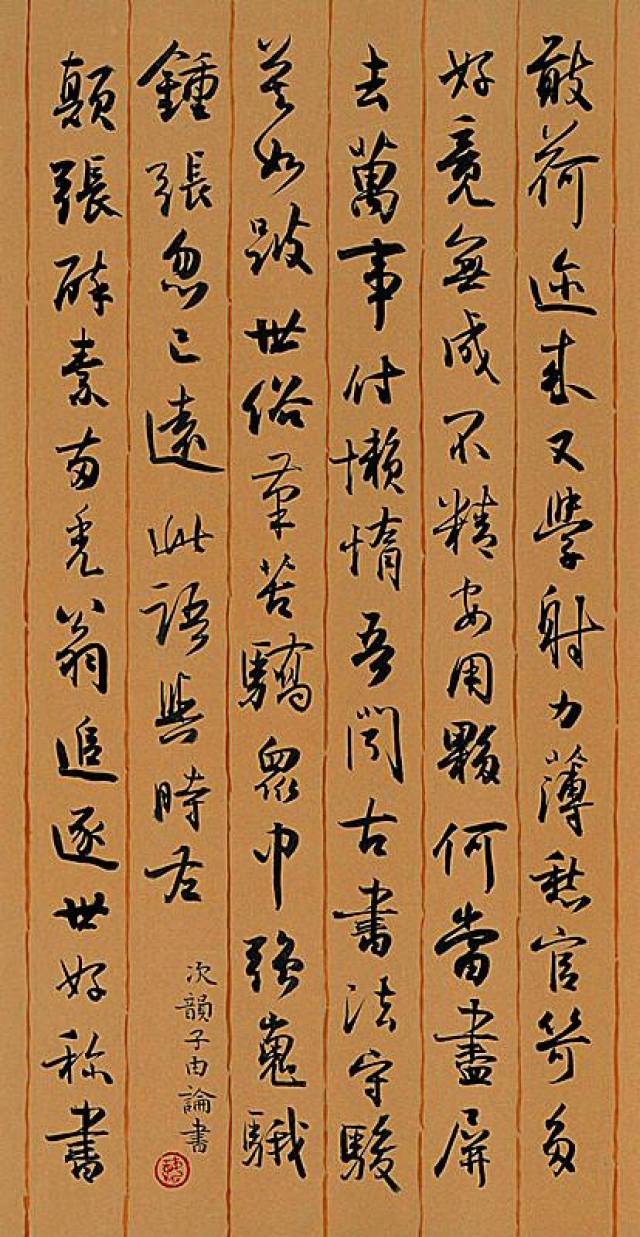 敢荷迩来又學射力薄愁官笴多
好竟無成不精安用夥何當盡屏
去萬事付懶惰吾聞古書法守駿
莫如跛世俗筆苦驕眾中強嵬騀
鍾張忽已遠此語與時左
次韻子由論書
顛張醉素兩禿翁追逐世好称書